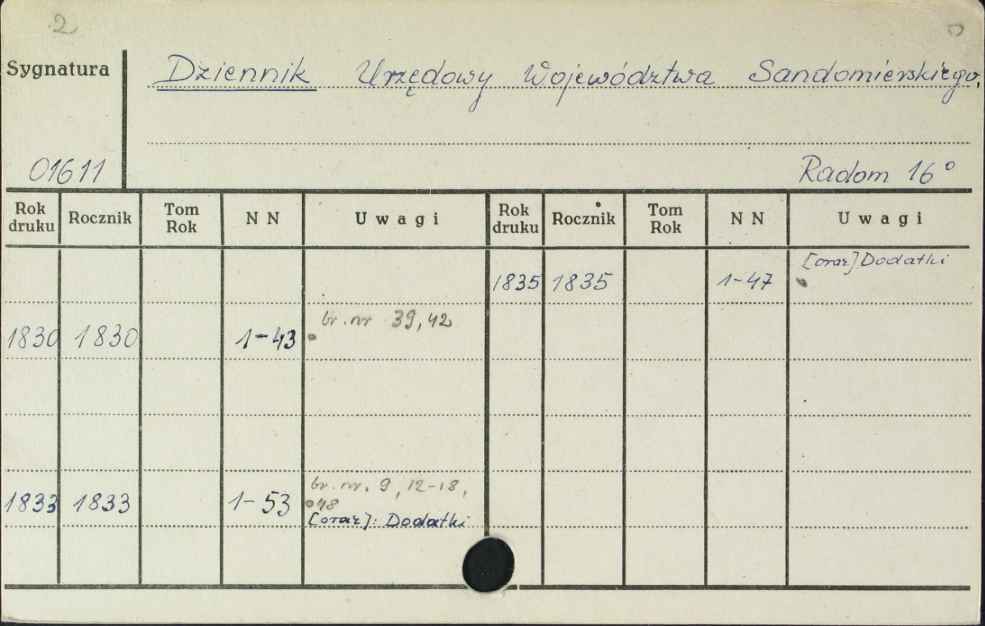 2
Sygnatura
Dziennik Urzędowy Województwa Sandomierskiego.
01611
Radom 16°
Rok druku Rocznik Tom Rok N N Uwagi Rok druku Rocznik Tom Rok N N Uwagi
1835 1835 1-47 [oraz] Dodatki
1830 1830 1-43 br. nr 39, 42
1833 1833 1-53 br. nr. 9, 12-18,
48
[oraz]: Dodatki